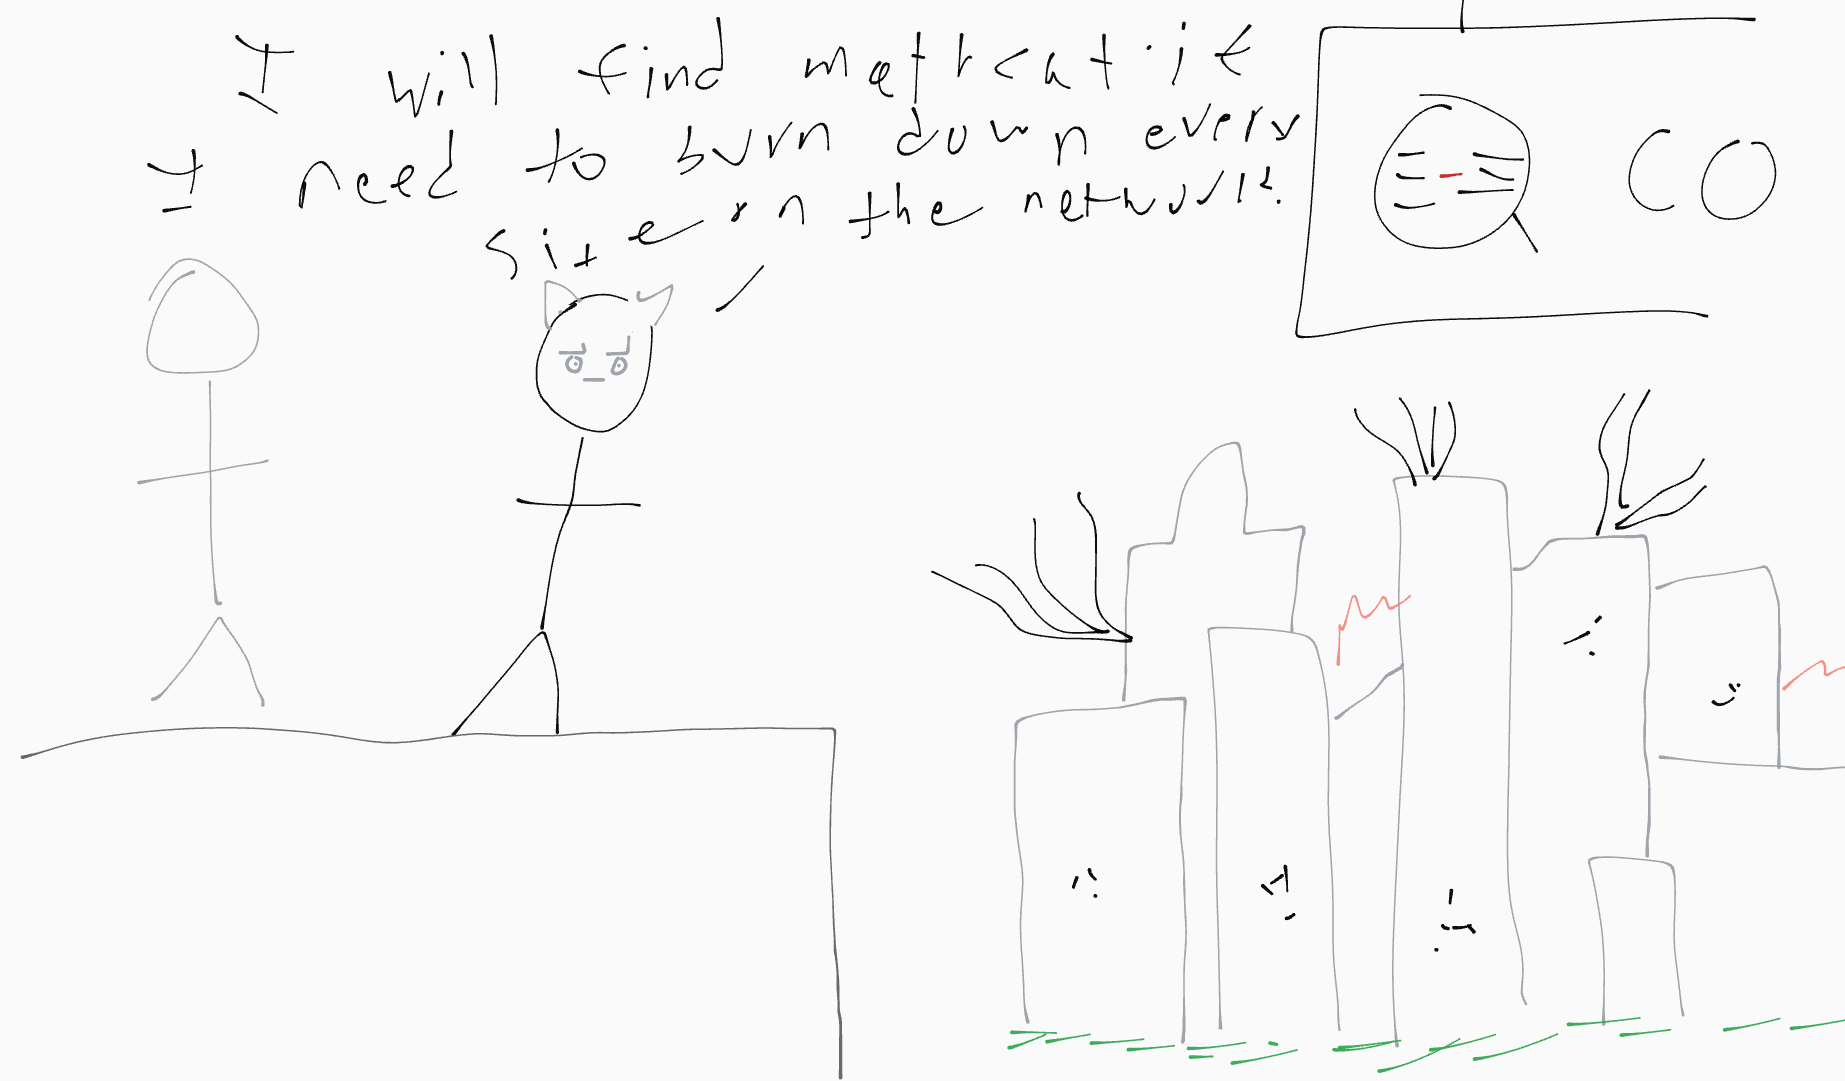 I will find mattcat. if
I need to burn down every
site on the network!
CO